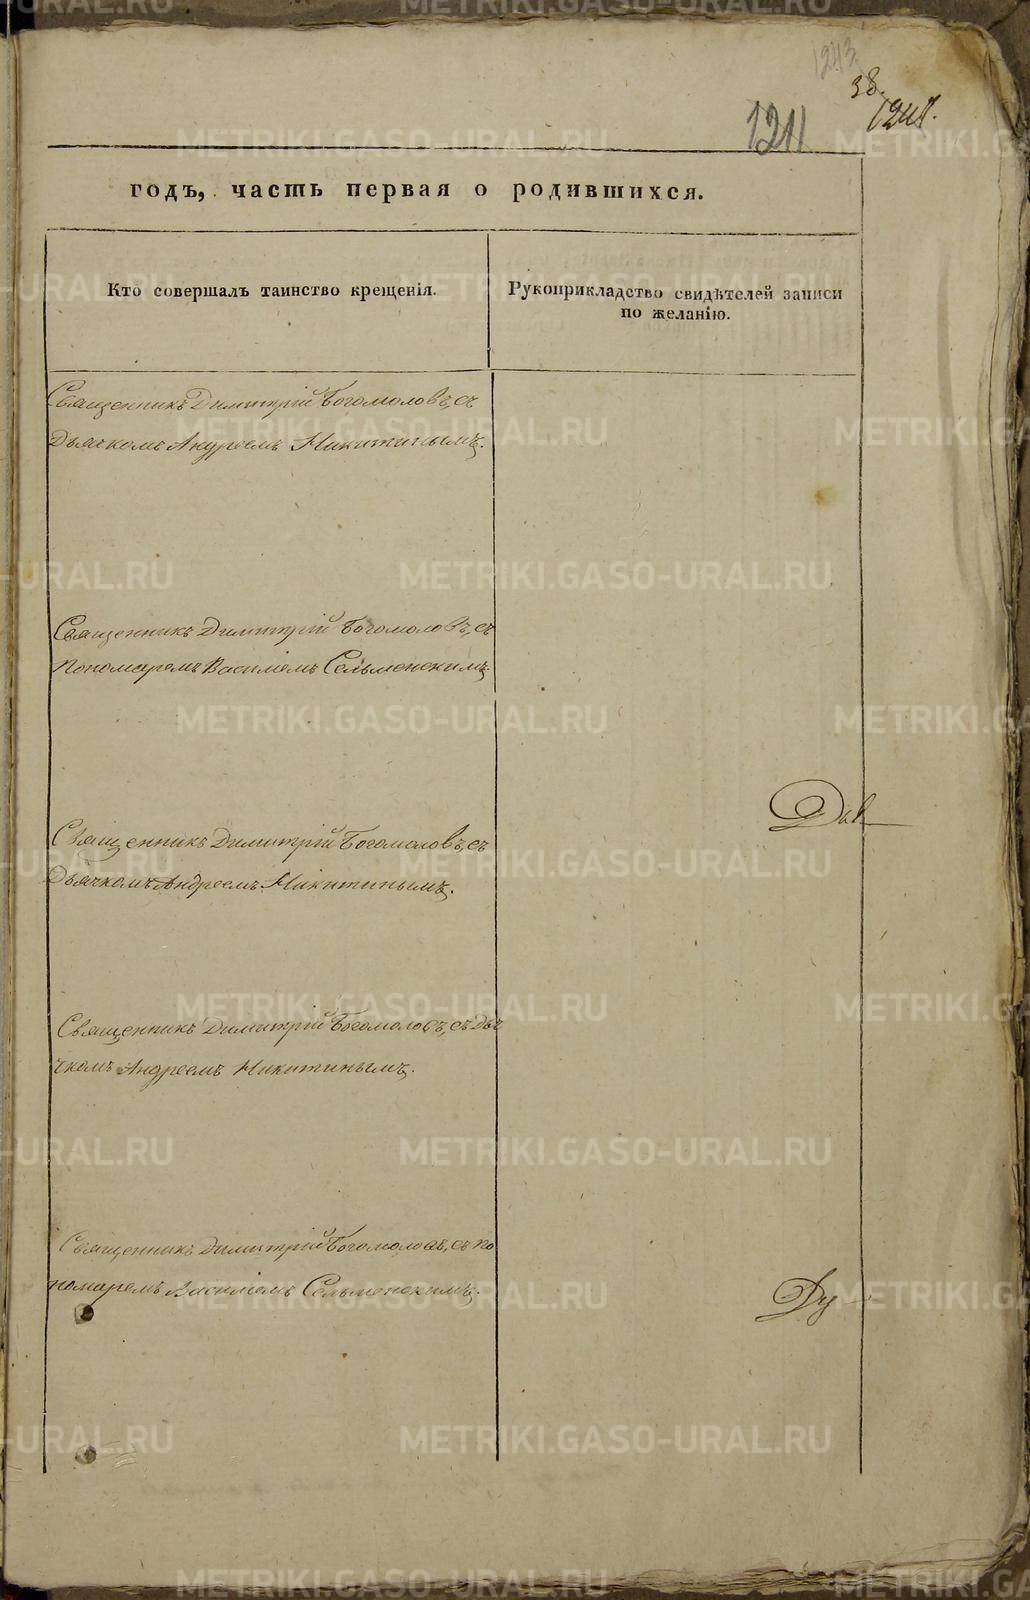 1243
38.
1211
годъ, часть первая о родившихся.
Кто совершалъ таинство крещенія.
Рукоприкладство свидѣтелей записи
по желанію.
Священникъ Димитрій Богомоловъ, съ
Дьячкомъ Андреемъ Никитинымъ.
Священникъ Димитрій Богомоловъ, съ
Пономаремъ Василіемъ Сельменскимъ.
Священникъ Димитрій Богомоловъ, съ
Дьячкомъ Андреемъ Никитинымъ.
Священникъ Димитрій Богомоловъ, съ Дья
чкомъ Андреемъ Никитинымъ.
Священникъ Димитрій Богомоловъ, съ По
номаремъ Василіемъ Сельменскимъ.
METRIKI.GASO-URAL.RU